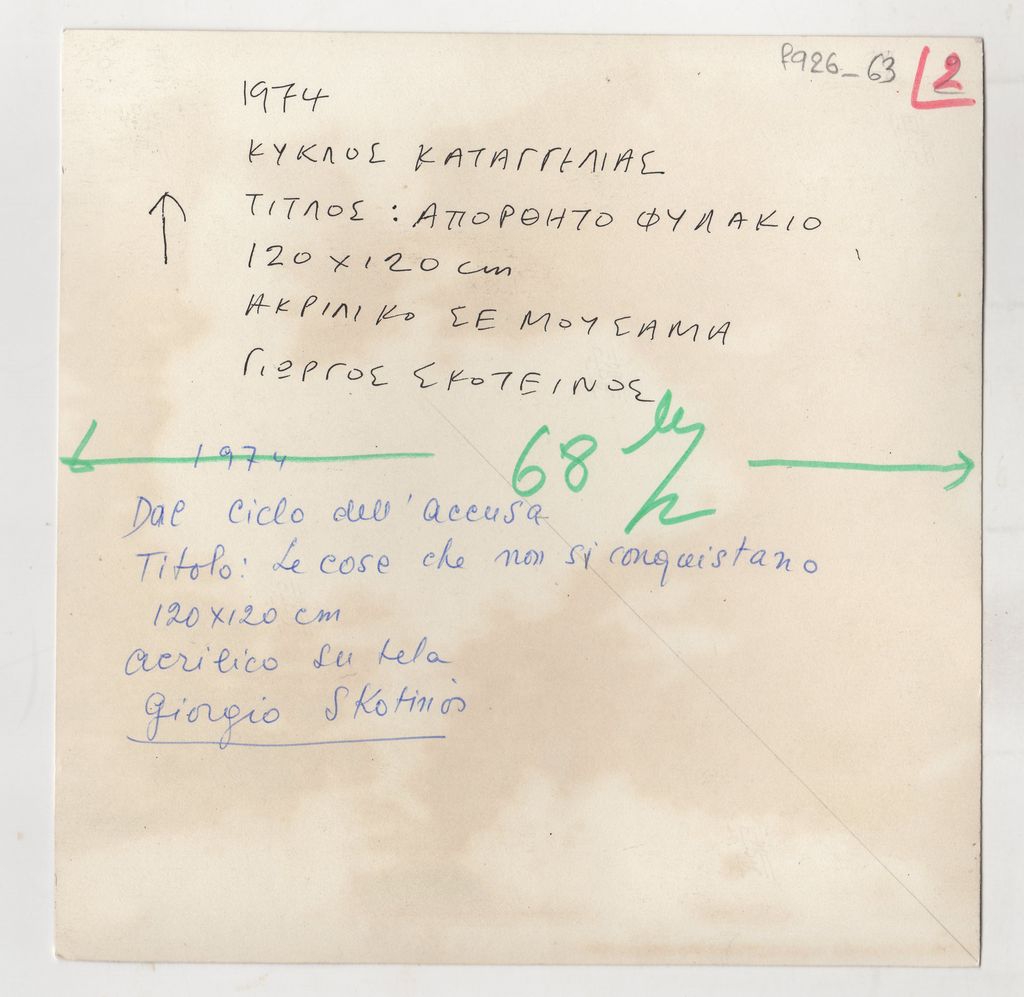 F926-63 2
1974
ΚΥΚΛΟΣ ΚΑΤΑΓΓΕΛΙΑΣ
ΤΙΤΛΟΣ : ΑΠΟΡΘΗΤΟ ΦΥΛΑΚΙΟ
120 x 120 cm
ΑΚΡΙΛΙΚΟ ΣΕ ΜΟΥΣΑΜΑ
ΓΙΩΡΓΟΣ ΣΚΟΤΕΙΝΟΣ
68
1974
Dal ciclo dell'accusa
Titolo: Le cose che non si conquistano
120x120 cm
acrilico su tela
Giorgio Skotinòs